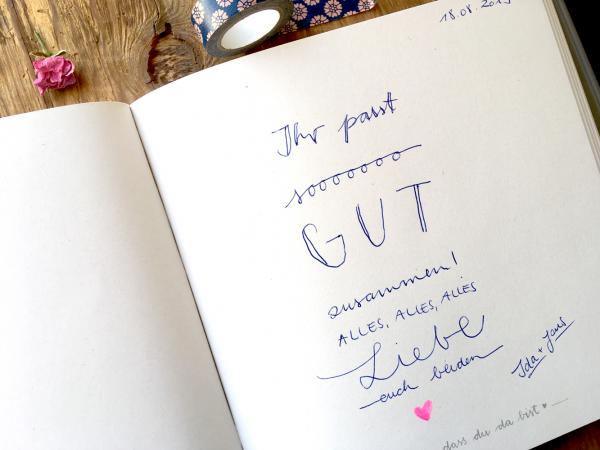 18.08.201
Ihr passt
sooooooo
GUT
zusammen!
ALLES, ALLES, ALLES
Liebe
euch beiden
Ida + Jans
dass du da bist